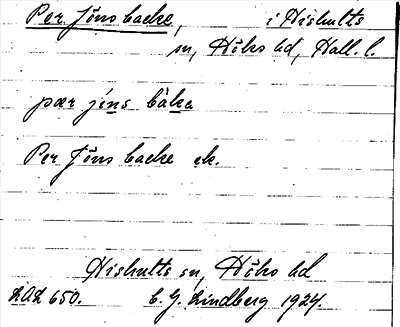 Per Jöns backe, i Hishults
sn, Höks hd, Hall. l.
pær jöns bàkə
Per Jöns backe ek.
Hishults sn, Höks hd
LAL 650. C. G. Lindberg 1924.